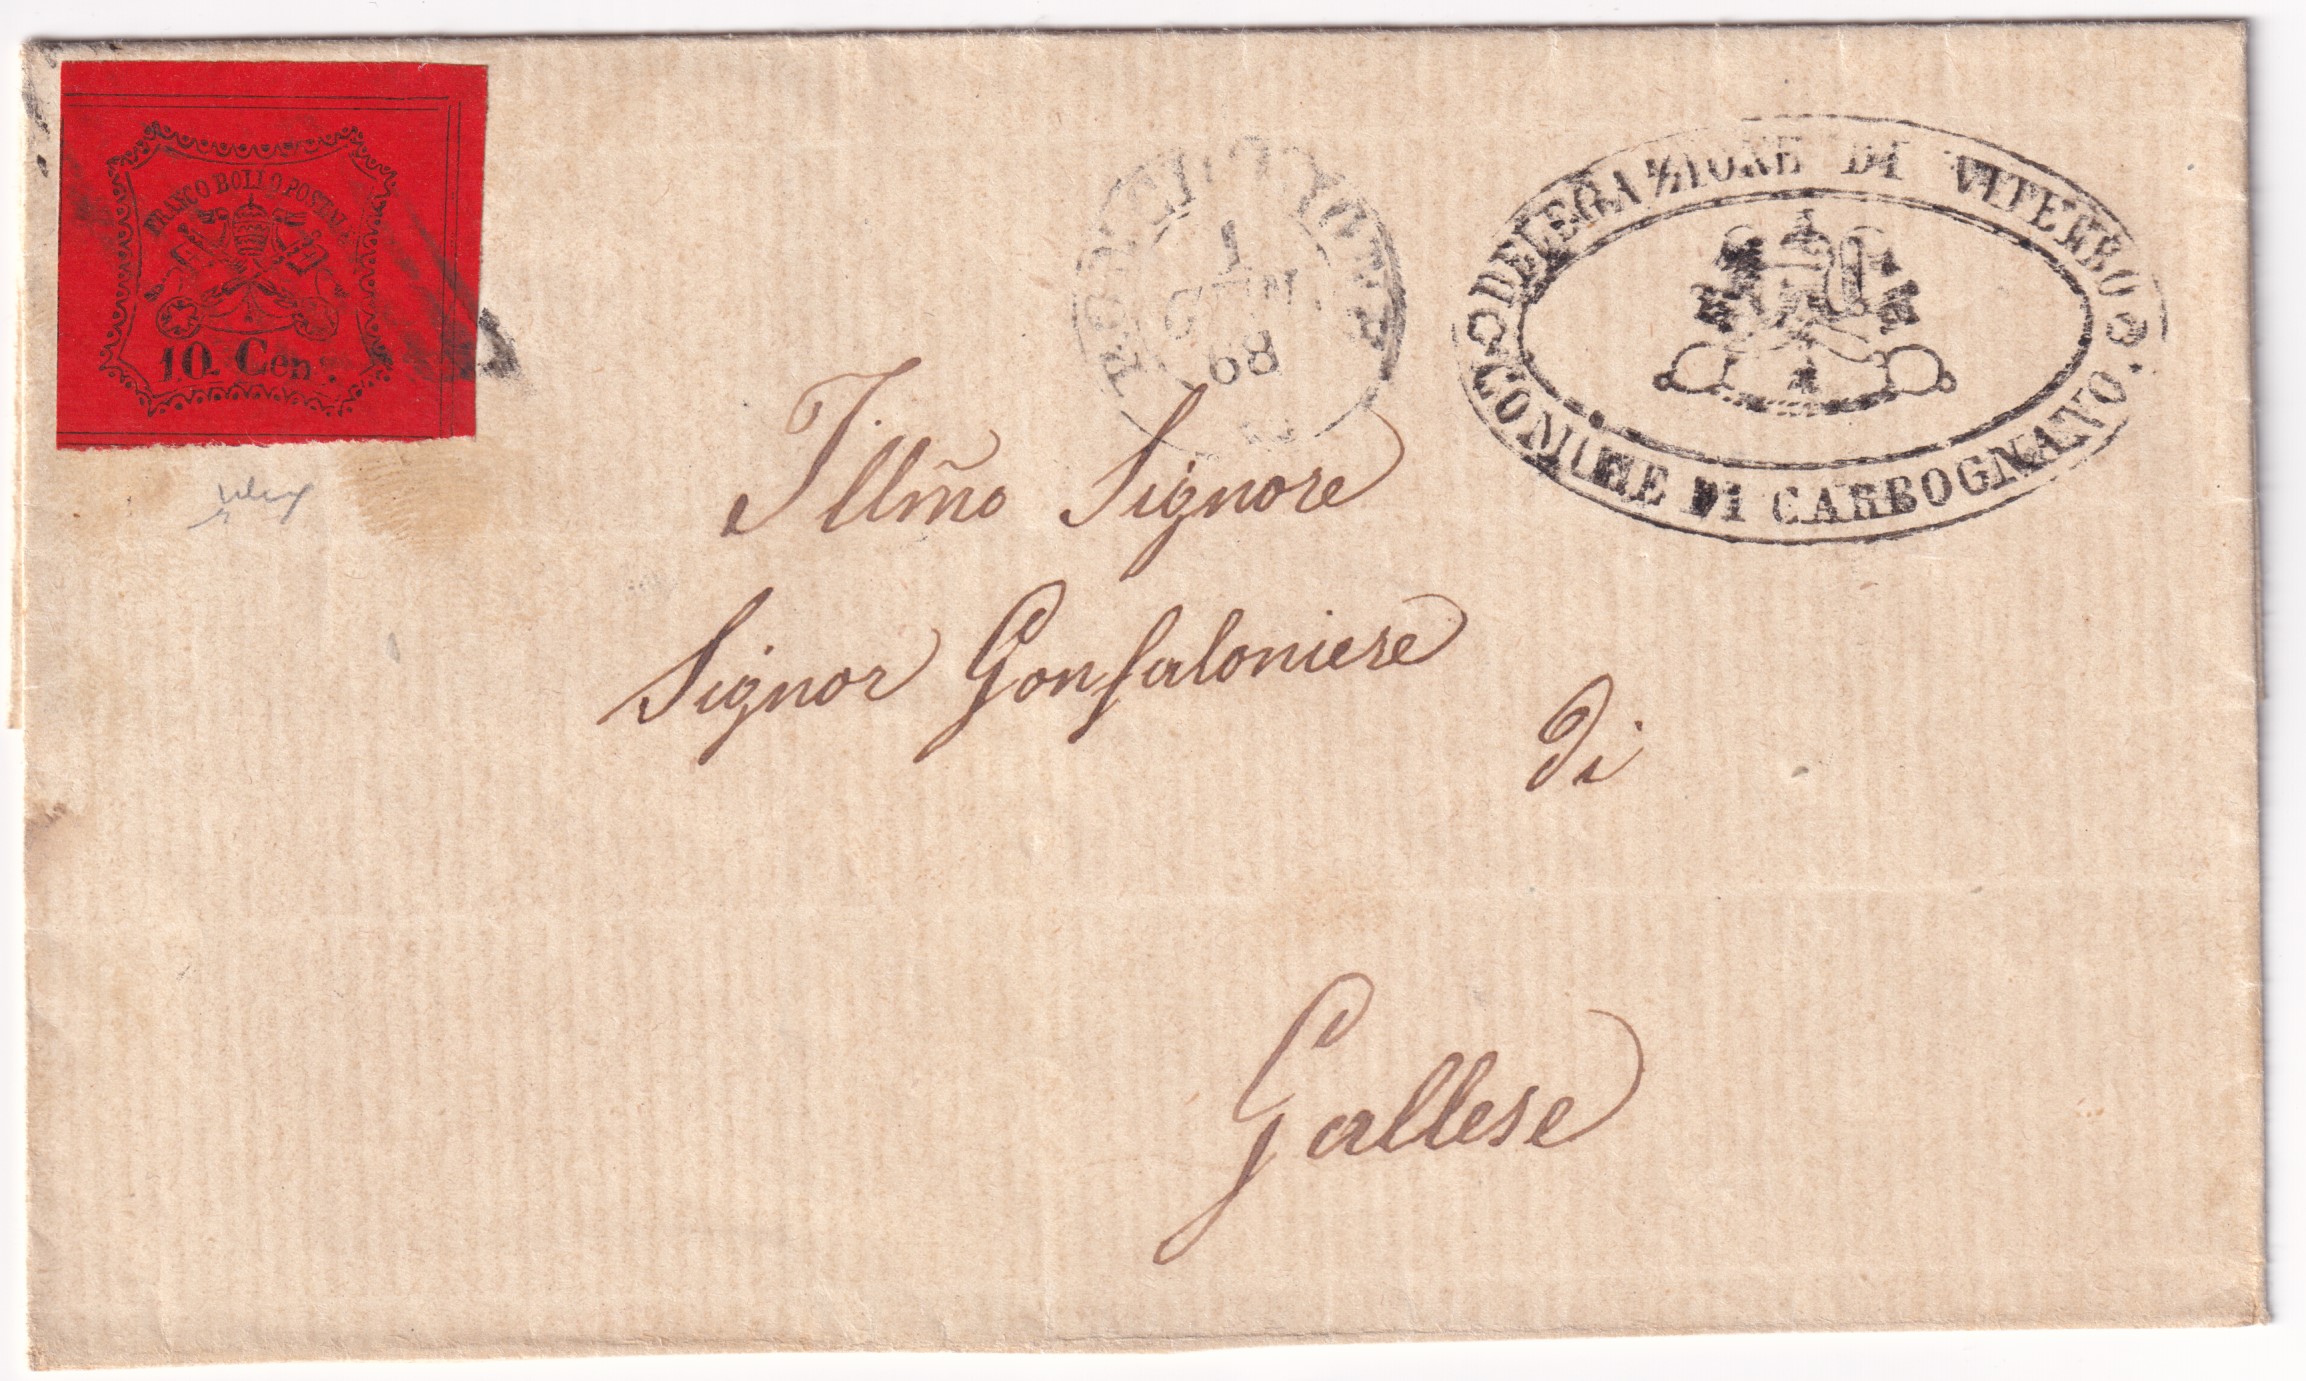 FRANCO BOLLO POSTALE
10. Cen.
1
GEN
68
DELEGAZIONE DI VITERBO
COMUNE DI CARBOGNANO
Illm̃o Signore
Signor Gonfaloniere
di
Gallese